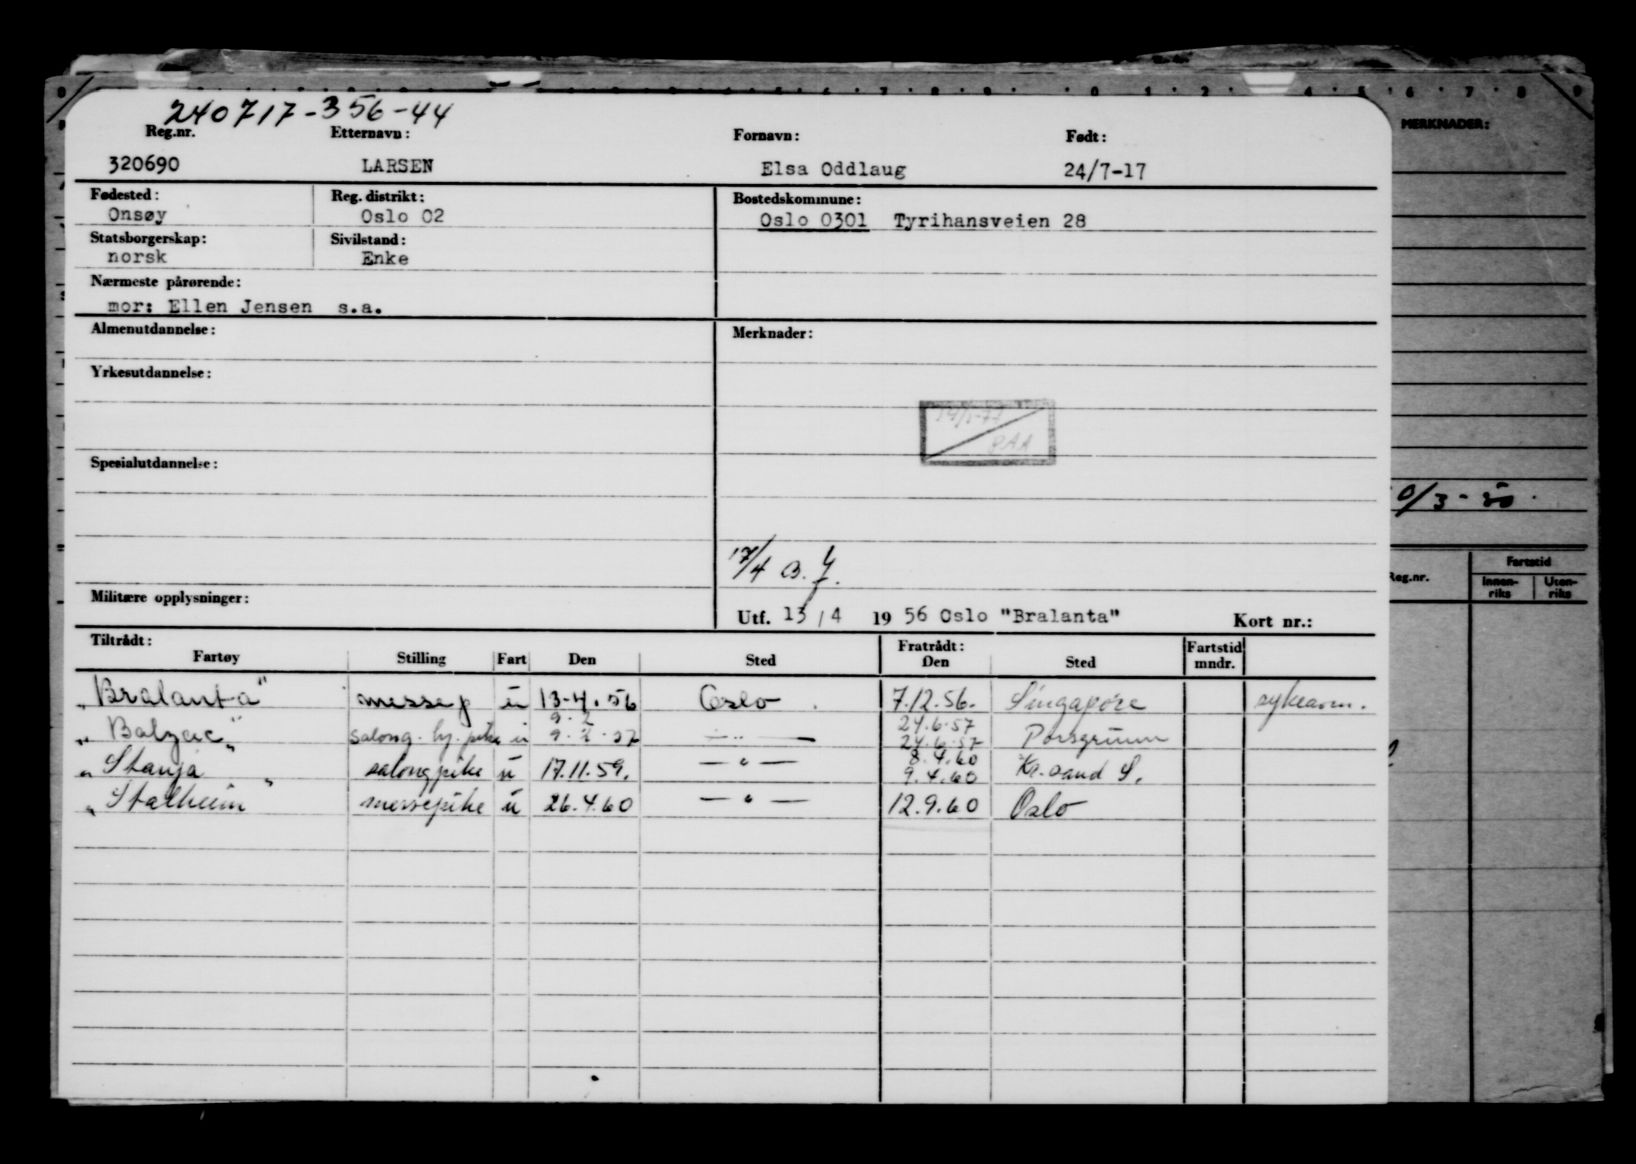 240717-356-44
Reg.nr. Etternavn: Fornavn: Født:
320690 LARSEN Elsa Oddlaug 24/7-17
Fødested: Reg. distrikt: Bostedskommune:
Onsøy Oslo 02 Oslo 0301 Tyrihansveien 28
Statsborgerskap: Sivilstand:
norsk Enke
Nærmeste pårørende:
mor: Ellen Jensen s.a.
Almenutdannelse: Merknader:
Yrkesutdannelse:
Spesialutdannelse:
17/4
Militære opplysninger:
Utf. 13/4 1956 Oslo "Bralanta" Kort nr.:
Tiltrådt: Fratrådt: Fartstid
Fartøy Stilling Fart Den Sted Den Sted mndr.
"Bralanta" messep u 13-4.56 Oslo 7.12.56. Singapore sykeavm.
9.2 24.6.57
"Balzac" salong. hj. pike u 9.2.57 — " — 24.6.57 Porsgrunn
8.4.60
"Stanja" salongpike u 17.11.59. — " — 9.4.60 Kr.sand S.
"Stalheim" messepike u 26.4.60 — " — 12.9.60 Oslo
MERKNADER:
0/3-50.
Reg.nr. Fartstid
Innen-riks Uten-riks